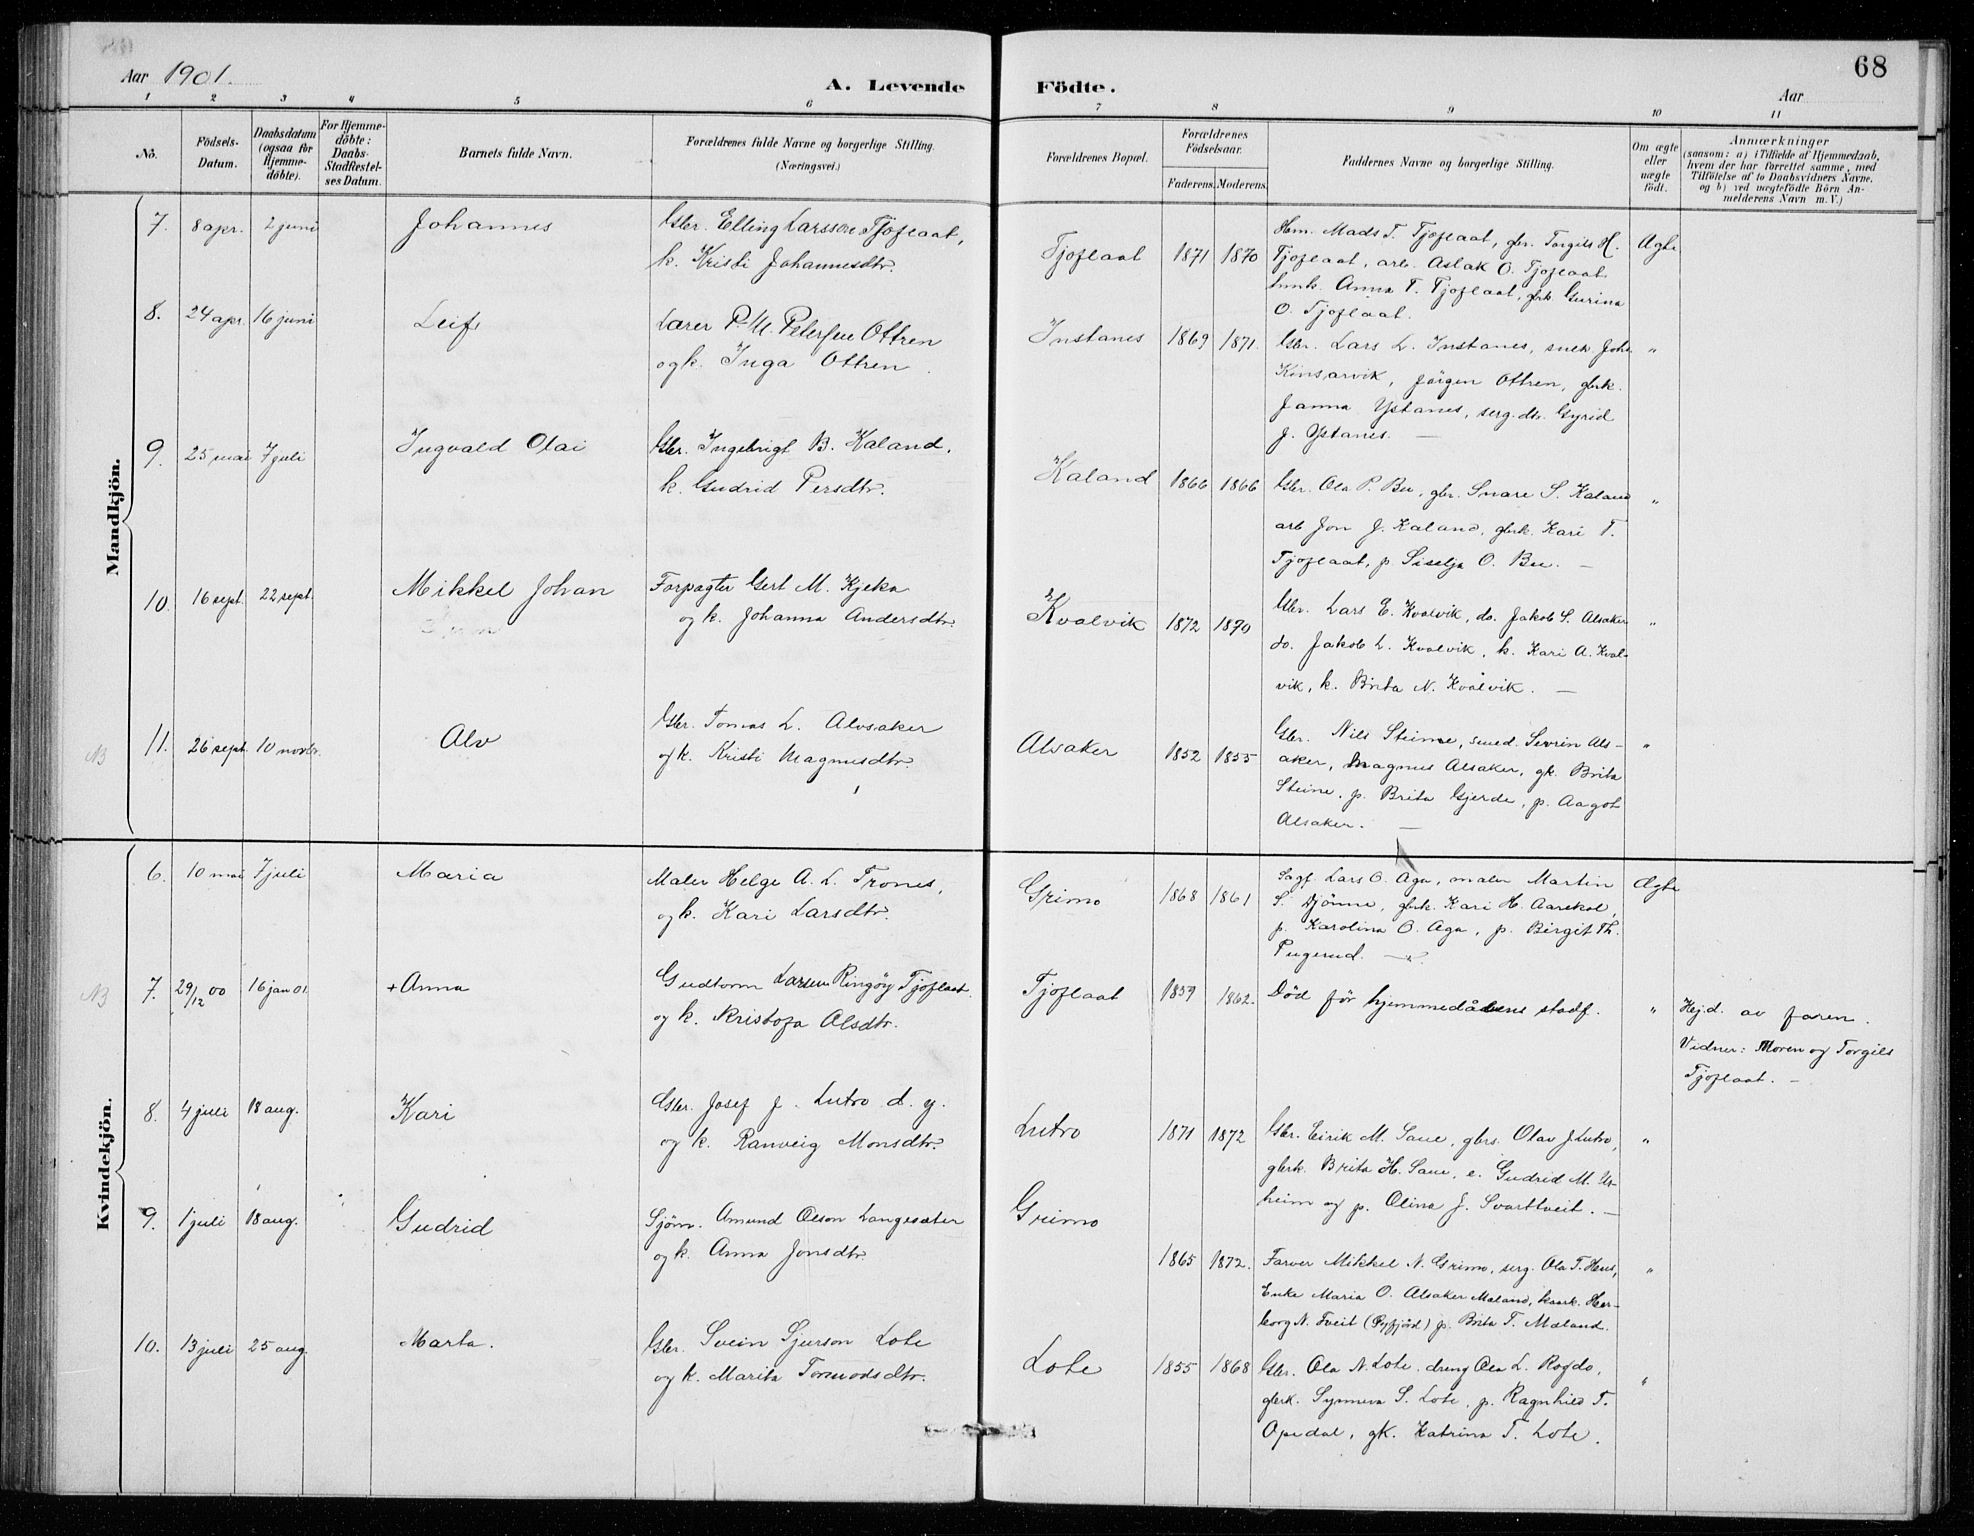 68
Aar 1901.
A. Levende Födte.
Aar
1 2 3 4 5 6 7 8 9 10 11
No.
Födsels-Datum.
Daabsdatum (ogsaa for Hjemme-döbte).
For Hjemme-döbte: Daabs-Stadfæstel-ses Datum.
Barnets fulde Navn.
Forældrenes fulde Navne og borgerlige Stilling. (Næringsvei.)
Forældrenes Bopæl.
Forældrenes Födselsaar.
Faderens. Moderens.
Faddernes Navne og borgerlige Stilling.
Om ægte eller uægte födt.
Anmærkninger
(saasom: a) i Tilfælde af Hjemmedaab,
hvem der har forrettet samme, med
Tilföielse af to Daabsvidners Navne,
og b) ved uægtefödte Börn An-
melderens Navn m. V.)
Mandkjön.
7. 8 apr. 2 juni Johannes
Gbr. Elling Larsson Tjoflaat,
k. Kristi Johannesdtr.
Tjoflaat 1871 1870
Hm. Mads T. Tjoflaat, gbr. Torgils H.
Tjoflaat, arb. Aslak O. Tjoflaat
Anna T. Tjoflaat, gbk. Gurina
O. Tjoflaat.
Ægte
8. 24 apr. 16 juni Leif
Lærer P. M. Petersen Ottren
og k. Inga Ottren.
Instanes 1869 1871.
Gbr. Lars L. Instanes, snek Joh.
Kinsarvik, Jörgen Ottren, gbrk.
Janna Ystanes, serg. dtr. Gyrid
J. Ystanes. —
"
9. 25 mai 7 juli Ingvald Olai
Gbr. Ingebrigt B. Kaland,
k. Gudrid Persdtr.
Kaland 1866 1866
Gbr. Ola P. Bu, gbr. Snare S. Kaland
arb Jon J. Kaland, gbrk. Kari T.
Tjoflaat, p Siselja O. Bu. —
"
10. 16 sept. 22 sept. Mikkel Johan
Forpagter Gert M. Kjeka
og k. Johanna Andersdtr.
Kvalvik 1872 1870
Gbr. Lars E. Kvalvik, do. Jakob S. Alsaker
do. Jakob L. Kvalvik, k. Kari A. Kval-
vik, k. Brita N. Kvalvik. —
"
NB 11. 26 sept. 10 novbr. Alv
Gbr. Tomas L. Alvsaker
og k. Kristi Magnusdtr.
Alsaker 1852 1855
Gbr. Nils Steine, smed. Severin Als-
aker, Magnus Alsaker, gk. Brita
Steine, p. Brita Gjerde, p. Aagot
Alsaker. —
"
Kvindekjön.
6. 10 mai 7 juli Maria
Maler Helge A. L. Trones,
og k. Kari Larsdtr.
Grimo 1868 1861
Sagf. Lars O. Aga, maler Martin
S. Djönne, gbrk. Kari H. Aarekol,
p. Karolina O. Aga, p. Birgit Th.
Pugerud. —
Ægte
NB 7. 29/12 00 16 jan 01. + Anna
Gudtorm Larsen Ringöy Tjoflaat.
og k. Kristofa Olsdtr.
Tjoflaat 1859 1862.
Död för hjemmedåbens stadf.
"
Hej.d. av faren.
Vidner: Moren og Torgils
Tjoflaat. —
8. 4 juli 18 aug. Kari
Gbr. Josef J. Lutro d. y.
og k. Ranveig Monsdtr.
Lutro 1871 1872
Gbr. Eirik M. Saue, gbrs. Olav J. Lutro,
gbrk. Brita H. Saue, e. Gudrid M. Us-
heim og p. Olina J. Svartveit. —
"
9. 1 juli 18 aug. Gudrid
Sjöm. Amund Olson Langesæter
og k. Anna Jonsdtr
Grimo 1865 1872.
Farver Mikkel N. Grimo, serg. Ola T. Hus,
Enke Maria O. Alsaker Mæland, k. Her-
borg N. Tveit p. Brita T. Mæland.
"
10. 13 juli 25 aug. Marta.
Gbr. Svein Sjurson Lote
og k. Marita Tormodsdtr.
Lote 1855 1868
Gbr. Ola N. Lote, dreng Ola L. Rogdo,
gbrk. Synneva S. Lote, p. Ragnhild T.
Opedal, gk. Katrina T. Lote.
"